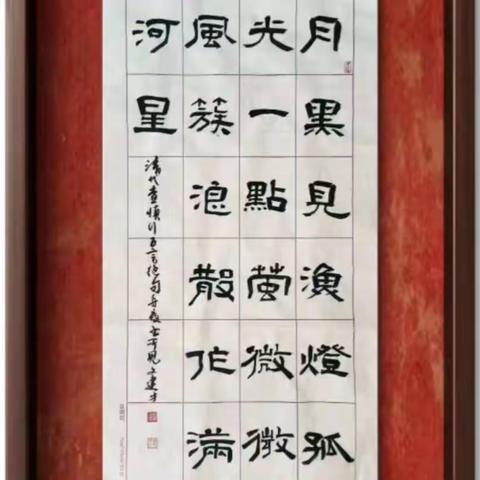 月黑見漁燈孤
光一點螢微微
風簇浪散作滿
河星
清代查慎行五言絕句舟夜書所見